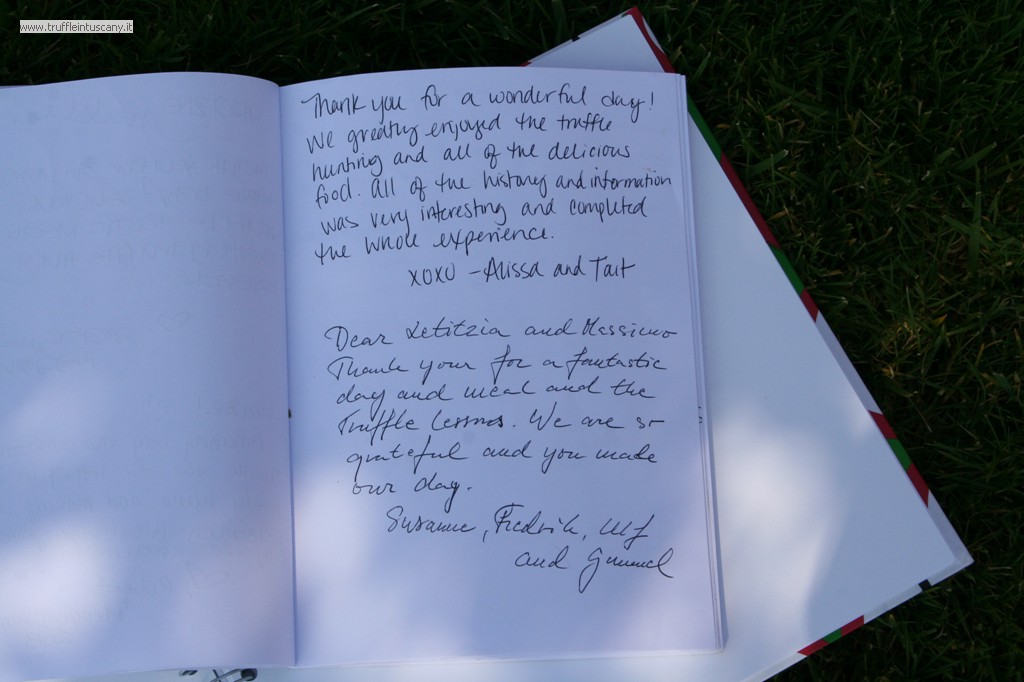 www.truffleintuscany.it
Thank you for a wonderful day!
We greatly enjoyed the truffle
hunting and all of the delicious
food. All of the history and information
was very interesting and completed
the whole experience.
XOXO - Alissa and Tait
Dear Letitzia and Massimo
Thank your for a fantastic
day and meal and the
Truffle lessons. We are so
grateful and you made
our day.
Susanne, Fredrik, Ulf
and Gunnel